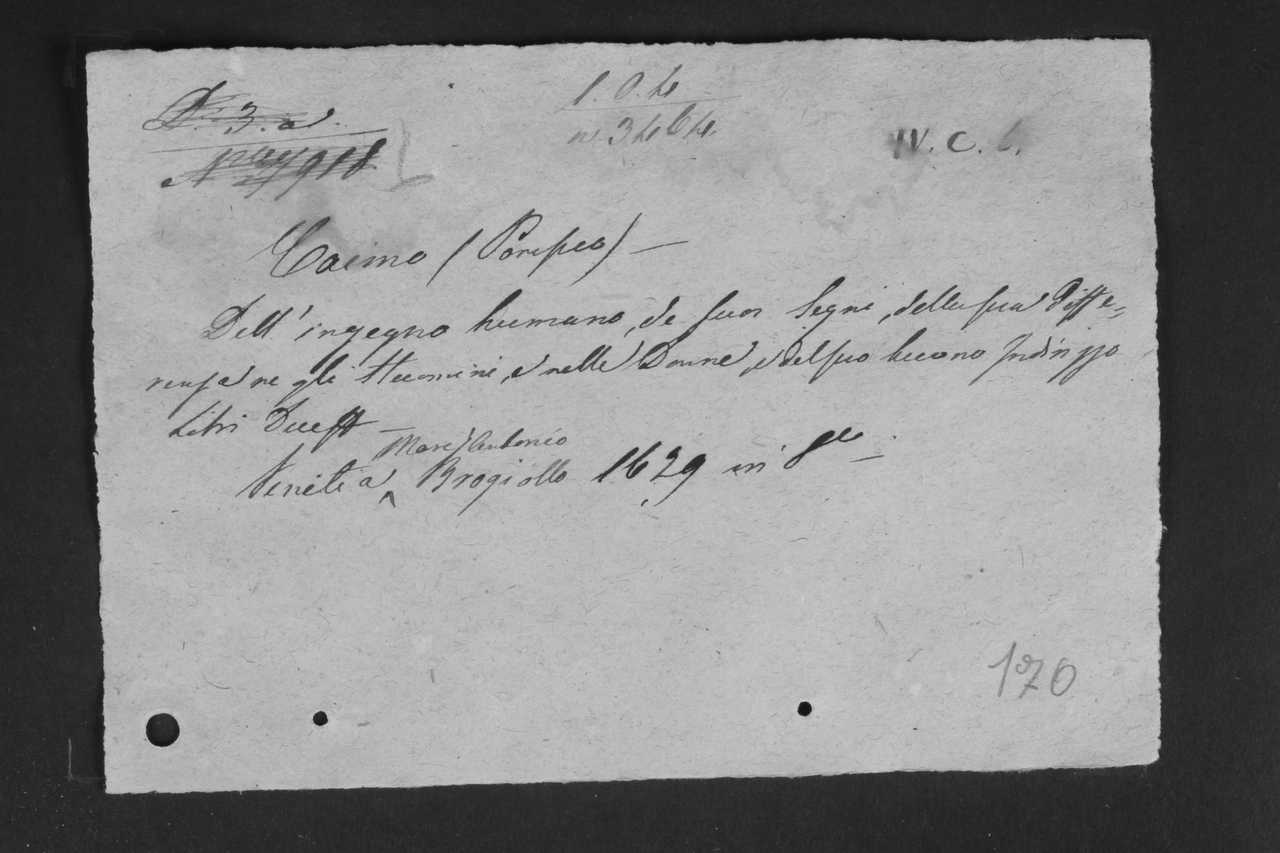 D. 3. a.
1. O. 4
n. 3464.
IV. C.
Caimo (Pompeo) —
Dell' ingegno humano, de suoi Segni, della sua Diffe-
renza negli Huomini, e nelle Donne, e del suo buono Indirizzo
Libri Due —
Marc' Antonio
Venetia ^ Brogiollo 1629 in 8vo —
170